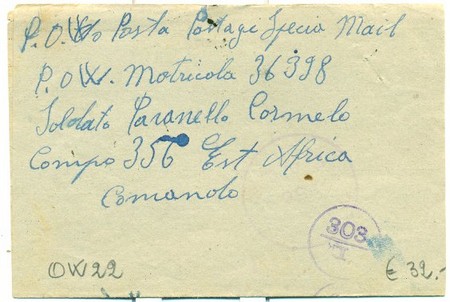 P.O.W. Posta Postage Specia Mail
P.O.W. Motricola 36398
Soldato Paranello Cormelo
Compo 356 Est Africa
Comando
303
VI
OW22
€ 32.-